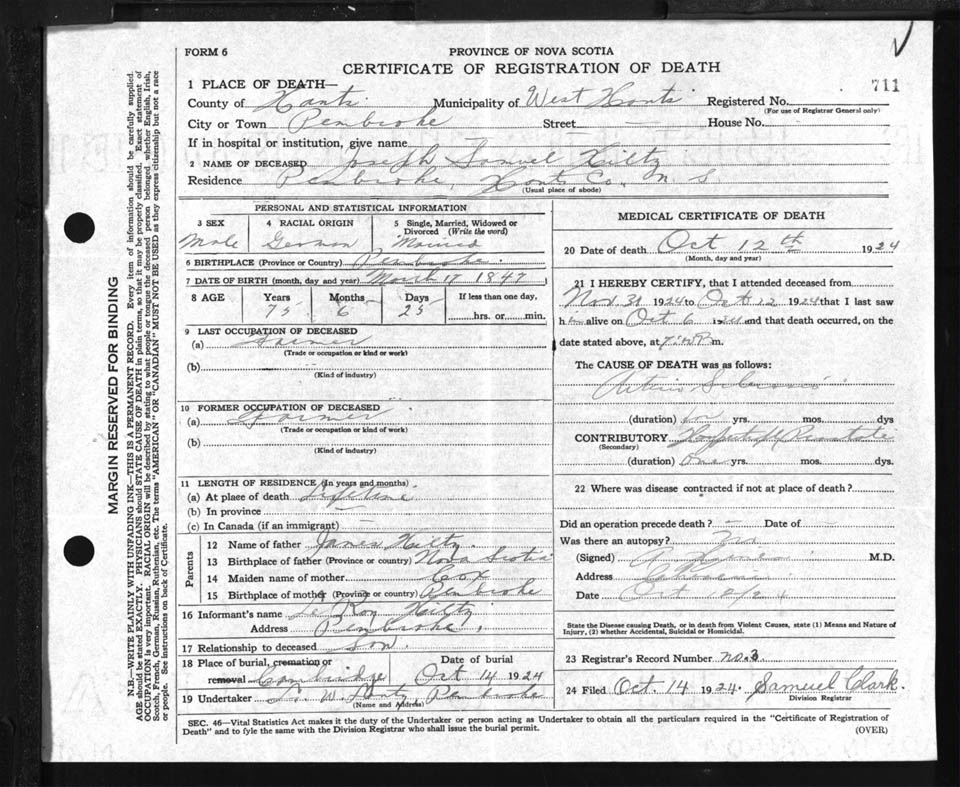 FORM 6
PROVINCE OF NOVA SCOTIA
CERTIFICATE OF REGISTRATION OF DEATH
711
1 PLACE OF DEATH—
County of Hants Municipality of West Hants Registered No.
(For use of Registrar General only)
City or Town Pembroke Street — House No.
If in hospital or institution, give name
2 NAME OF DECEASED Joseph Samuel Hiltz
Residence Pembroke, Hants Co., N. S.
(Usual place of abode)
PERSONAL AND STATISTICAL INFORMATION
3 SEX 4 RACIAL ORIGIN 5 Single, Married, Widowed or Divorced (Write the word)
Male German Married
6 BIRTHPLACE (Province or Country) Pembroke.
7 DATE OF BIRTH (month, day and year) March 17 1847
8 AGE Years Months Days If less than one day,
75 6 25 hrs. or min.
9 LAST OCCUPATION OF DECEASED
(a) Farmer
(Trade or occupation or kind or work)
(b)
(Kind of industry)
10 FORMER OCCUPATION OF DECEASED
(a) Farmer
(Trade or occupation or kind of work)
(b)
(Kind of industry)
11 LENGTH OF RESIDENCE (In years and months)
(a) At place of death Lifetime
(b) In province —
(c) In Canada (if an immigrant) —
Parents
12 Name of father James Hiltz.
13 Birthplace of father (Province or country) Nova Scotia
14 Maiden name of mother Cox
15 Birthplace of mother (Province or country) Pembroke
16 Informant's name LeRoy Hiltz
Address Pembroke,
17 Relationship to deceased Son
18 Place of burial, cremation or removal Cambridge Date of burial Oct 14 1924
19 Undertaker W. Pembroke
(Name and Address)
MEDICAL CERTIFICATE OF DEATH
20 Date of death Oct 12th 1924
(Month, day and year)
21 I HEREBY CERTIFY, that I attended deceased from
Nov. 31 1924 to Oct 12 1924 that I last saw
him alive on Oct 6 1924 and that death occurred, on the
date stated above, at m.
The CAUSE OF DEATH was as follows:
(duration) yrs. mos. dys
CONTRIBUTORY Prostate
(Secondary)
(duration) One yrs. mos. dys.
22 Where was disease contracted if not at place of death?
Did an operation precede death? — Date of
Was there an autopsy? No
(Signed) M.D.
Address
Date Oct 12/24
State the Disease causing Death, or in death from Violent Causes, state (1) Means and Nature of Injury, (2) whether Accidental, Suicidal or Homicidal.
23 Registrar's Record Number no. 3.
24 Filed Oct. 14 1924. Samuel Clark.
Division Registrar
SEC. 46—Vital Statistics Act makes it the duty of the Undertaker or person acting as Undertaker to obtain all the particulars required in the "Certificate of Registration of
Death" and to fyle the same with the Division Registrar who shall issue the burial permit.
(OVER)
MARGIN RESERVED FOR BINDING
N.B.—WRITE PLAINLY WITH UNFADING INK—THIS IS A PERMANENT RECORD. Every item of information should be carefully supplied.
AGE should be stated EXACTLY. PHYSICIANS should STATE CAUSE OF DEATH in plain terms, so that it may be properly classified. Exact statement of
OCCUPATION is very important. RACIAL ORIGIN will be described by stating to what people or tongue the deceased person belonged whether English, Irish,
Scotch, French, German, Russian, Ruthenian, etc. The terms "AMERICAN" OR "CANADIAN" MUST NOT BE USED as they express citizenship but not a race
or people. See instructions on back of Certificate.